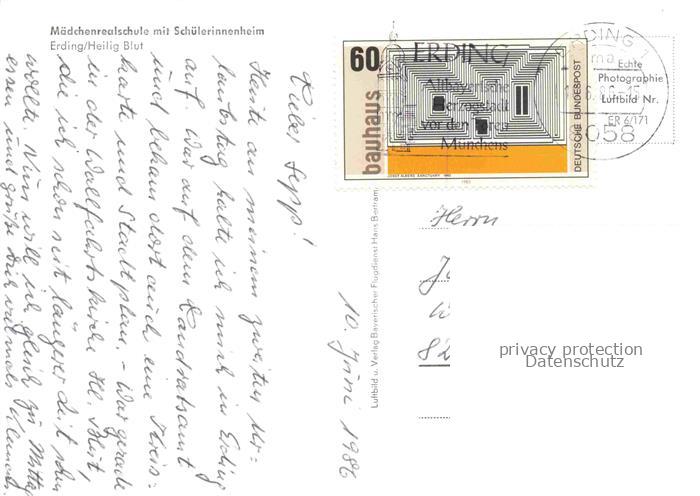 Mädchenrealschule mit Schülerinnenheim
Erding/Heilig Blut
Lieber Sepp!
Heute an meinem zweiten Ur=
laubstag halte ich mich in Erding
auf. War auf dem Landratsamt
und bekam dort auch eine Kreis=
karte und Stadtplan. - War gerade
in der Wallfahrtskirche Hl. Blut,
die ich schon seit längerer Zeit sehen
wollte. Nun will ich gleich zu Mittag
essen und grüße Dich vielmals
10. Juni 1986
Luftbild u. Verlag Bayerischer Flugdienst Hans Bertram
60
bauhaus
DEUTSCHE BUNDESPOST
JOSEF ALBERS SANCTUARY 1942
1983
ERDING
Altbayerische
Herzogstadt
vor den Toren
Münchens
ERDING 1
8058
Echte
Photographie
Luftbild Nr.
ER 6/171
Herrn
82
privacy protection
Datenschutz